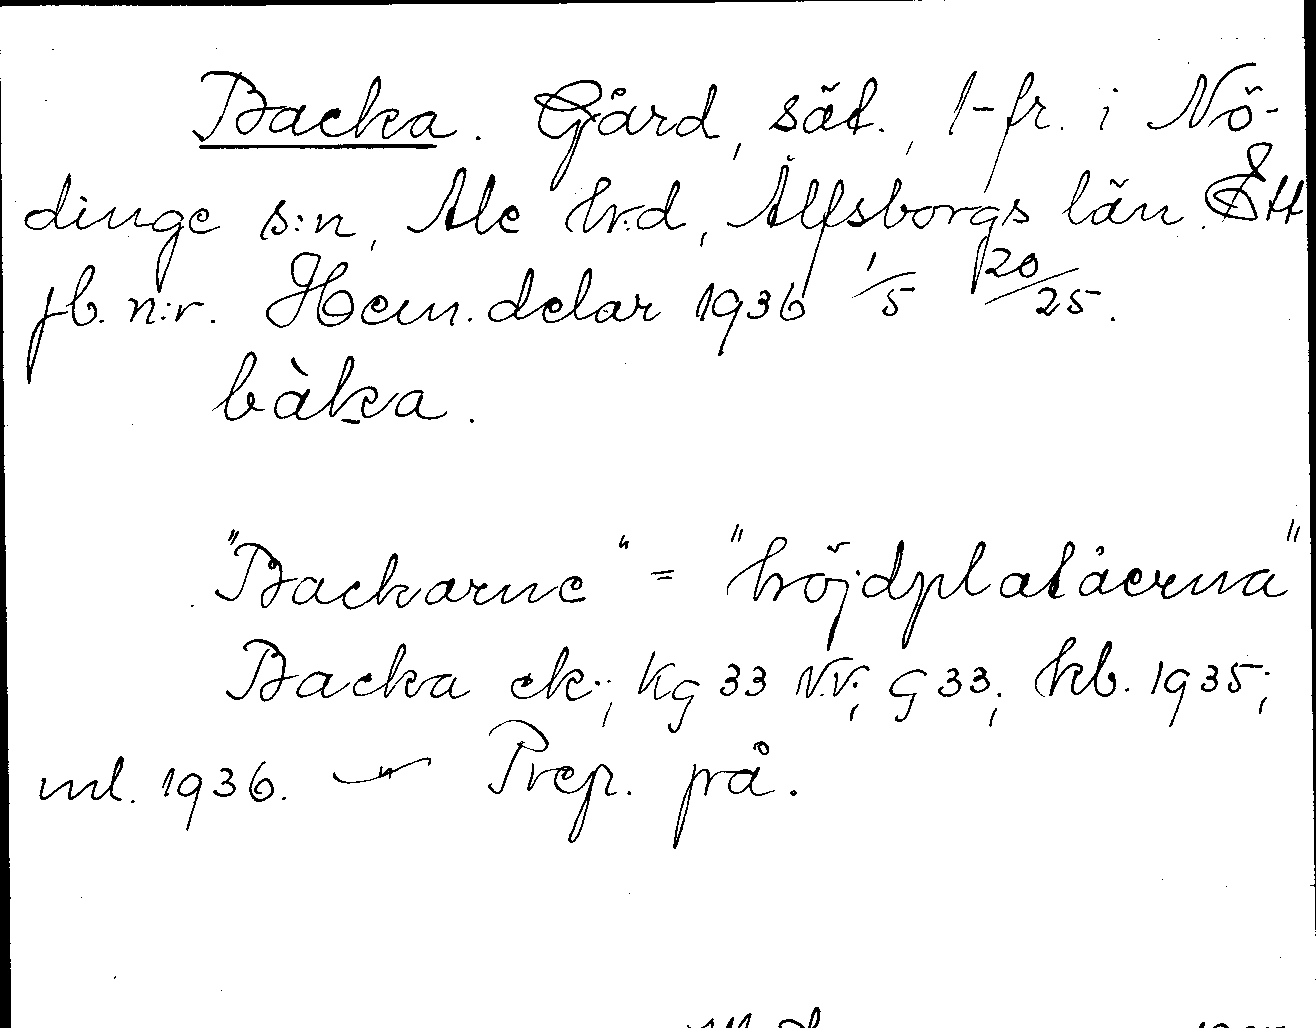 Backa. Gård, sät., 1-fr. i Nö-
dinge s:n, Ale hrd, Älfsborgs län. Ett
jb. n:r. Hem.delar 1936 1/5 20/25.
bàka.
"Backarne" = "höjdplatåerna"
Backa ek.; Kg 33 N.V.; G 33; kb. 1935;
ml. 1936. — " — Prep. på.